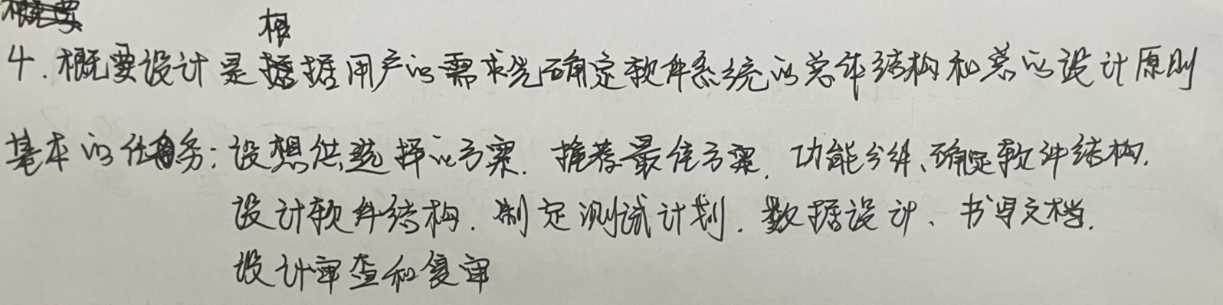 4.概要设计是根据用户的需求先确定软件系统的总体结构和总的设计原则
基本的任务:设想供选择的方案.推荐最佳方案.功能分解、确定软件结构.
设计软件结构.制定测试计划.数据设计、书写文档.
设计审查和复审